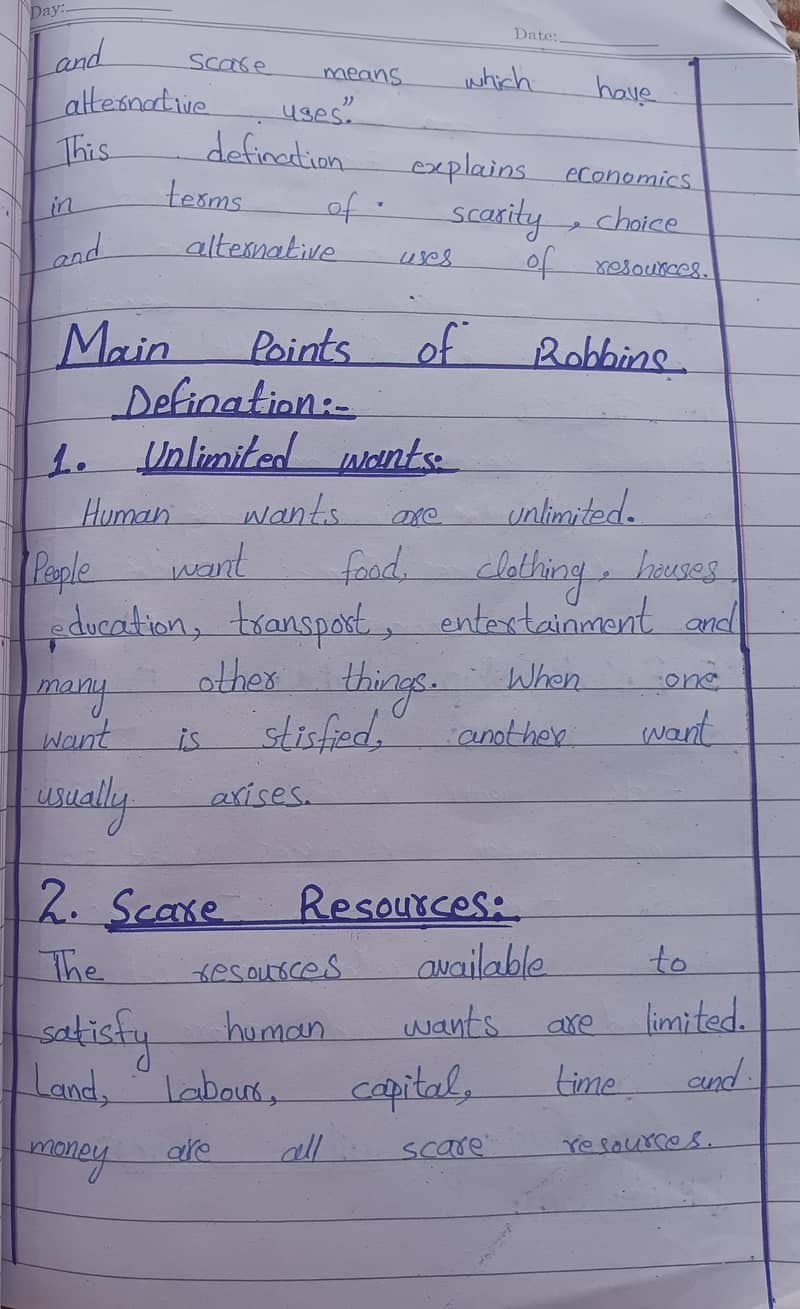 Day:
Date:
and scare means which have
alternative uses."
This defination explains economics
in terms of scarity, choice
and alternative uses of resources.
Main Points of Robbins
Defination:-
1. Unlimited wants:
Human wants are unlimited.
People want food, clothing, houses
education, transport, entertainment and
many other things. When one
want is stisfied, another want
usually arises.
2. Scare Resources:
The resources available to
satisfy human wants are limited.
Land, Labour, capital, time and
money are all scare resources.